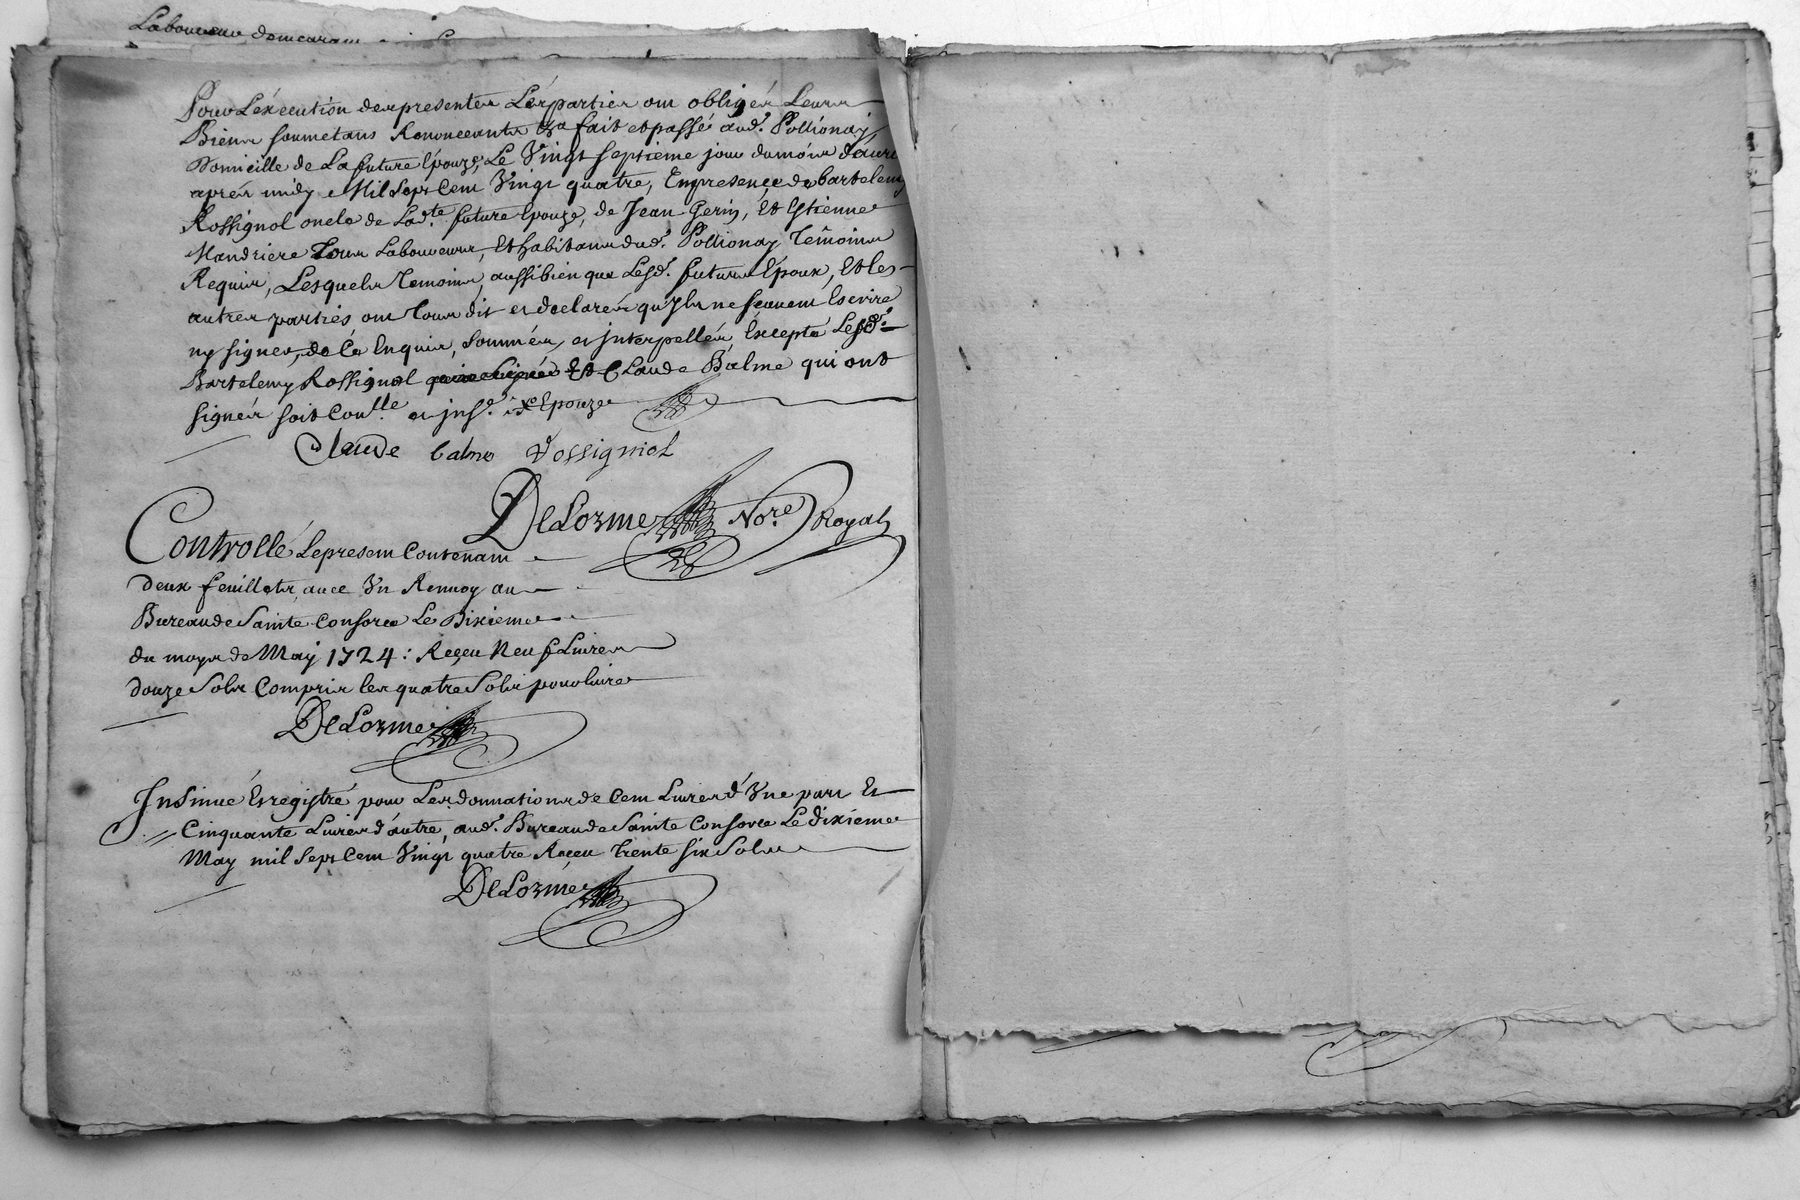 Laboureur demeurant
Pour L'éxécution des presentes Les parties ont obligés Leurs
Biens soumettans Renonceants &a fait et passé aud.t Pollionay,
Domicille de La future Epouze, Le Vingt septieme jour du mois d'avril
aprés midy Mil Sept Cent Vingt quatre, En presence de bartelemy
Rossignol oncle de Lad.te future Epouze, de Jean Gerin, Et Estienne
Mandriere Tous Laboureurs, Et habitans dud.t Pollionay Temoins
Requis, Lesquels Temoins, aussi bien que Lesd.t futurs Epoux, Et les
autres parties ont Tous dit et declarés qu'Ils ne scavent Escrire
ny signer, de Ce Enquis, sommés, et interpellés, Excepté Lesd.t
Bartelemy Rossignol Et Claude Balme qui ont
signés soit Conlle et ins.é Epouze
Claude balme Rossigniol
DeLorme Nore. Royal
Controllé Le present Contenant
deux feuillets, avec Un Renvoy au
Bureau de Sainte Consorce Le Dixieme
du moys de May 1724 : Reçeu Neuf Livres
douze Sols Compris les quatre Sols pour livre
DeLorme
Insinué Enregistré pour Les donnations de Cent Livres d'Une part Et
Cinquante Livres d'autre, aud.t Bureau de Sainte Consorce Le dixieme
May mil Sept Cent Vingt quatre Reçeu Trente six Sols
DeLorme